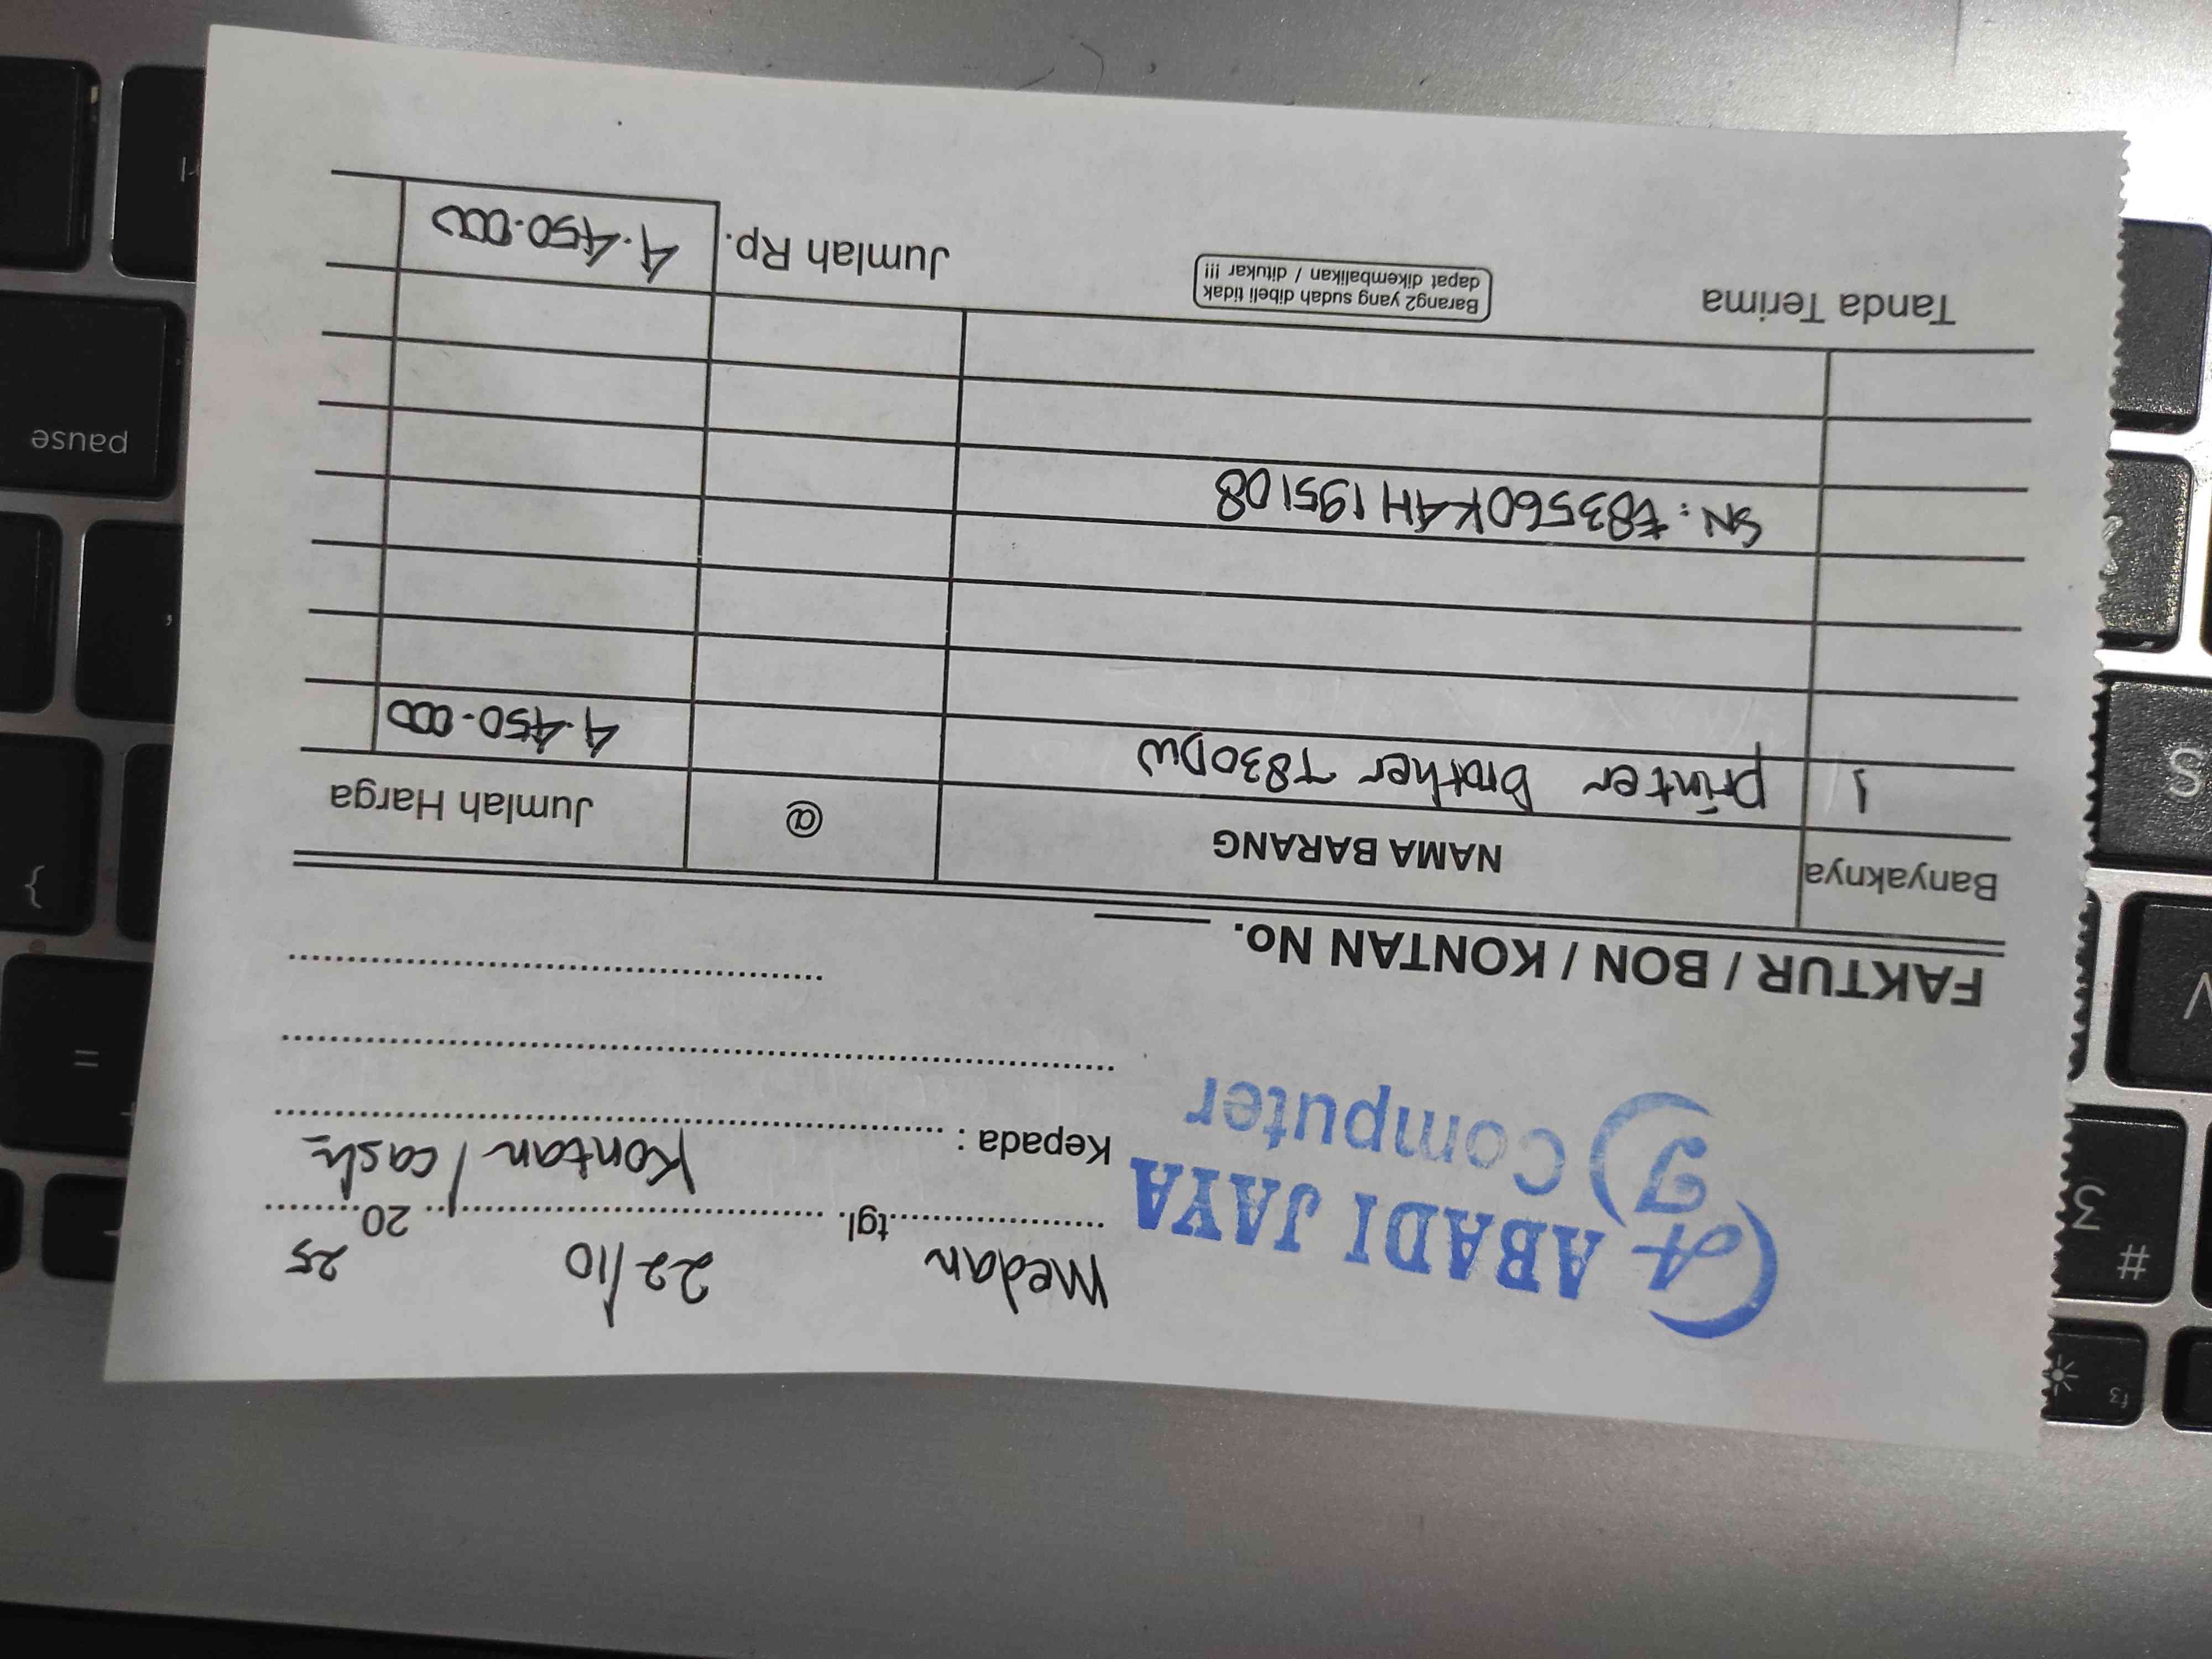 ABADI JAYA
Computer
Medan tgl. 22/10 2025
Kepada : Kontan / cash
FAKTUR / BON / KONTAN No.
Banyaknya NAMA BARANG @ Jumlah Harga
1 printer Brother T830DW 4.450.000
SN: E83560K4H195108
Tanda Terima
Barang2 yang sudah dibeli tidak
dapat dikembalikan / ditukar !!!
Jumlah Rp. 4.450.000
pause
}
=
S
# 3
f3